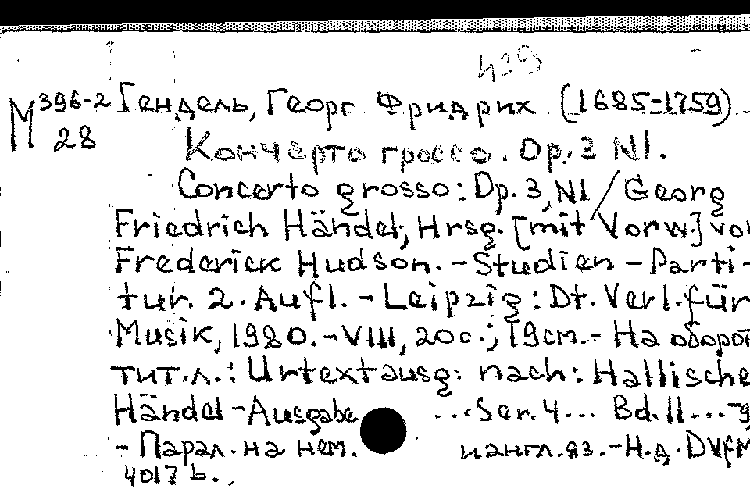 429
М 396-2 Гендель, Георг Фридрих (1685-1759)
28 Кончерто гроссо. Op. 3 N1.
Concerto grosso: Op. 3, N1 / Georg
Friedrich Händel; Hrsg. [mit Vorw.] von
Frederick Hudson. - Studien - Parti-
tur. 2. Aufl. - Leipzig: Dt. Verl. für
Musik, 1980. - VIII, 20 с.; 19 см. - На оборот
тит.л.: Urtextausg. nach: Hallische
Händel-Ausgabe ... Ser. 4 ... Bd. 11 ...
- Парал. на нем. и англ. яз. - Н.д. DVfM
4017 b.